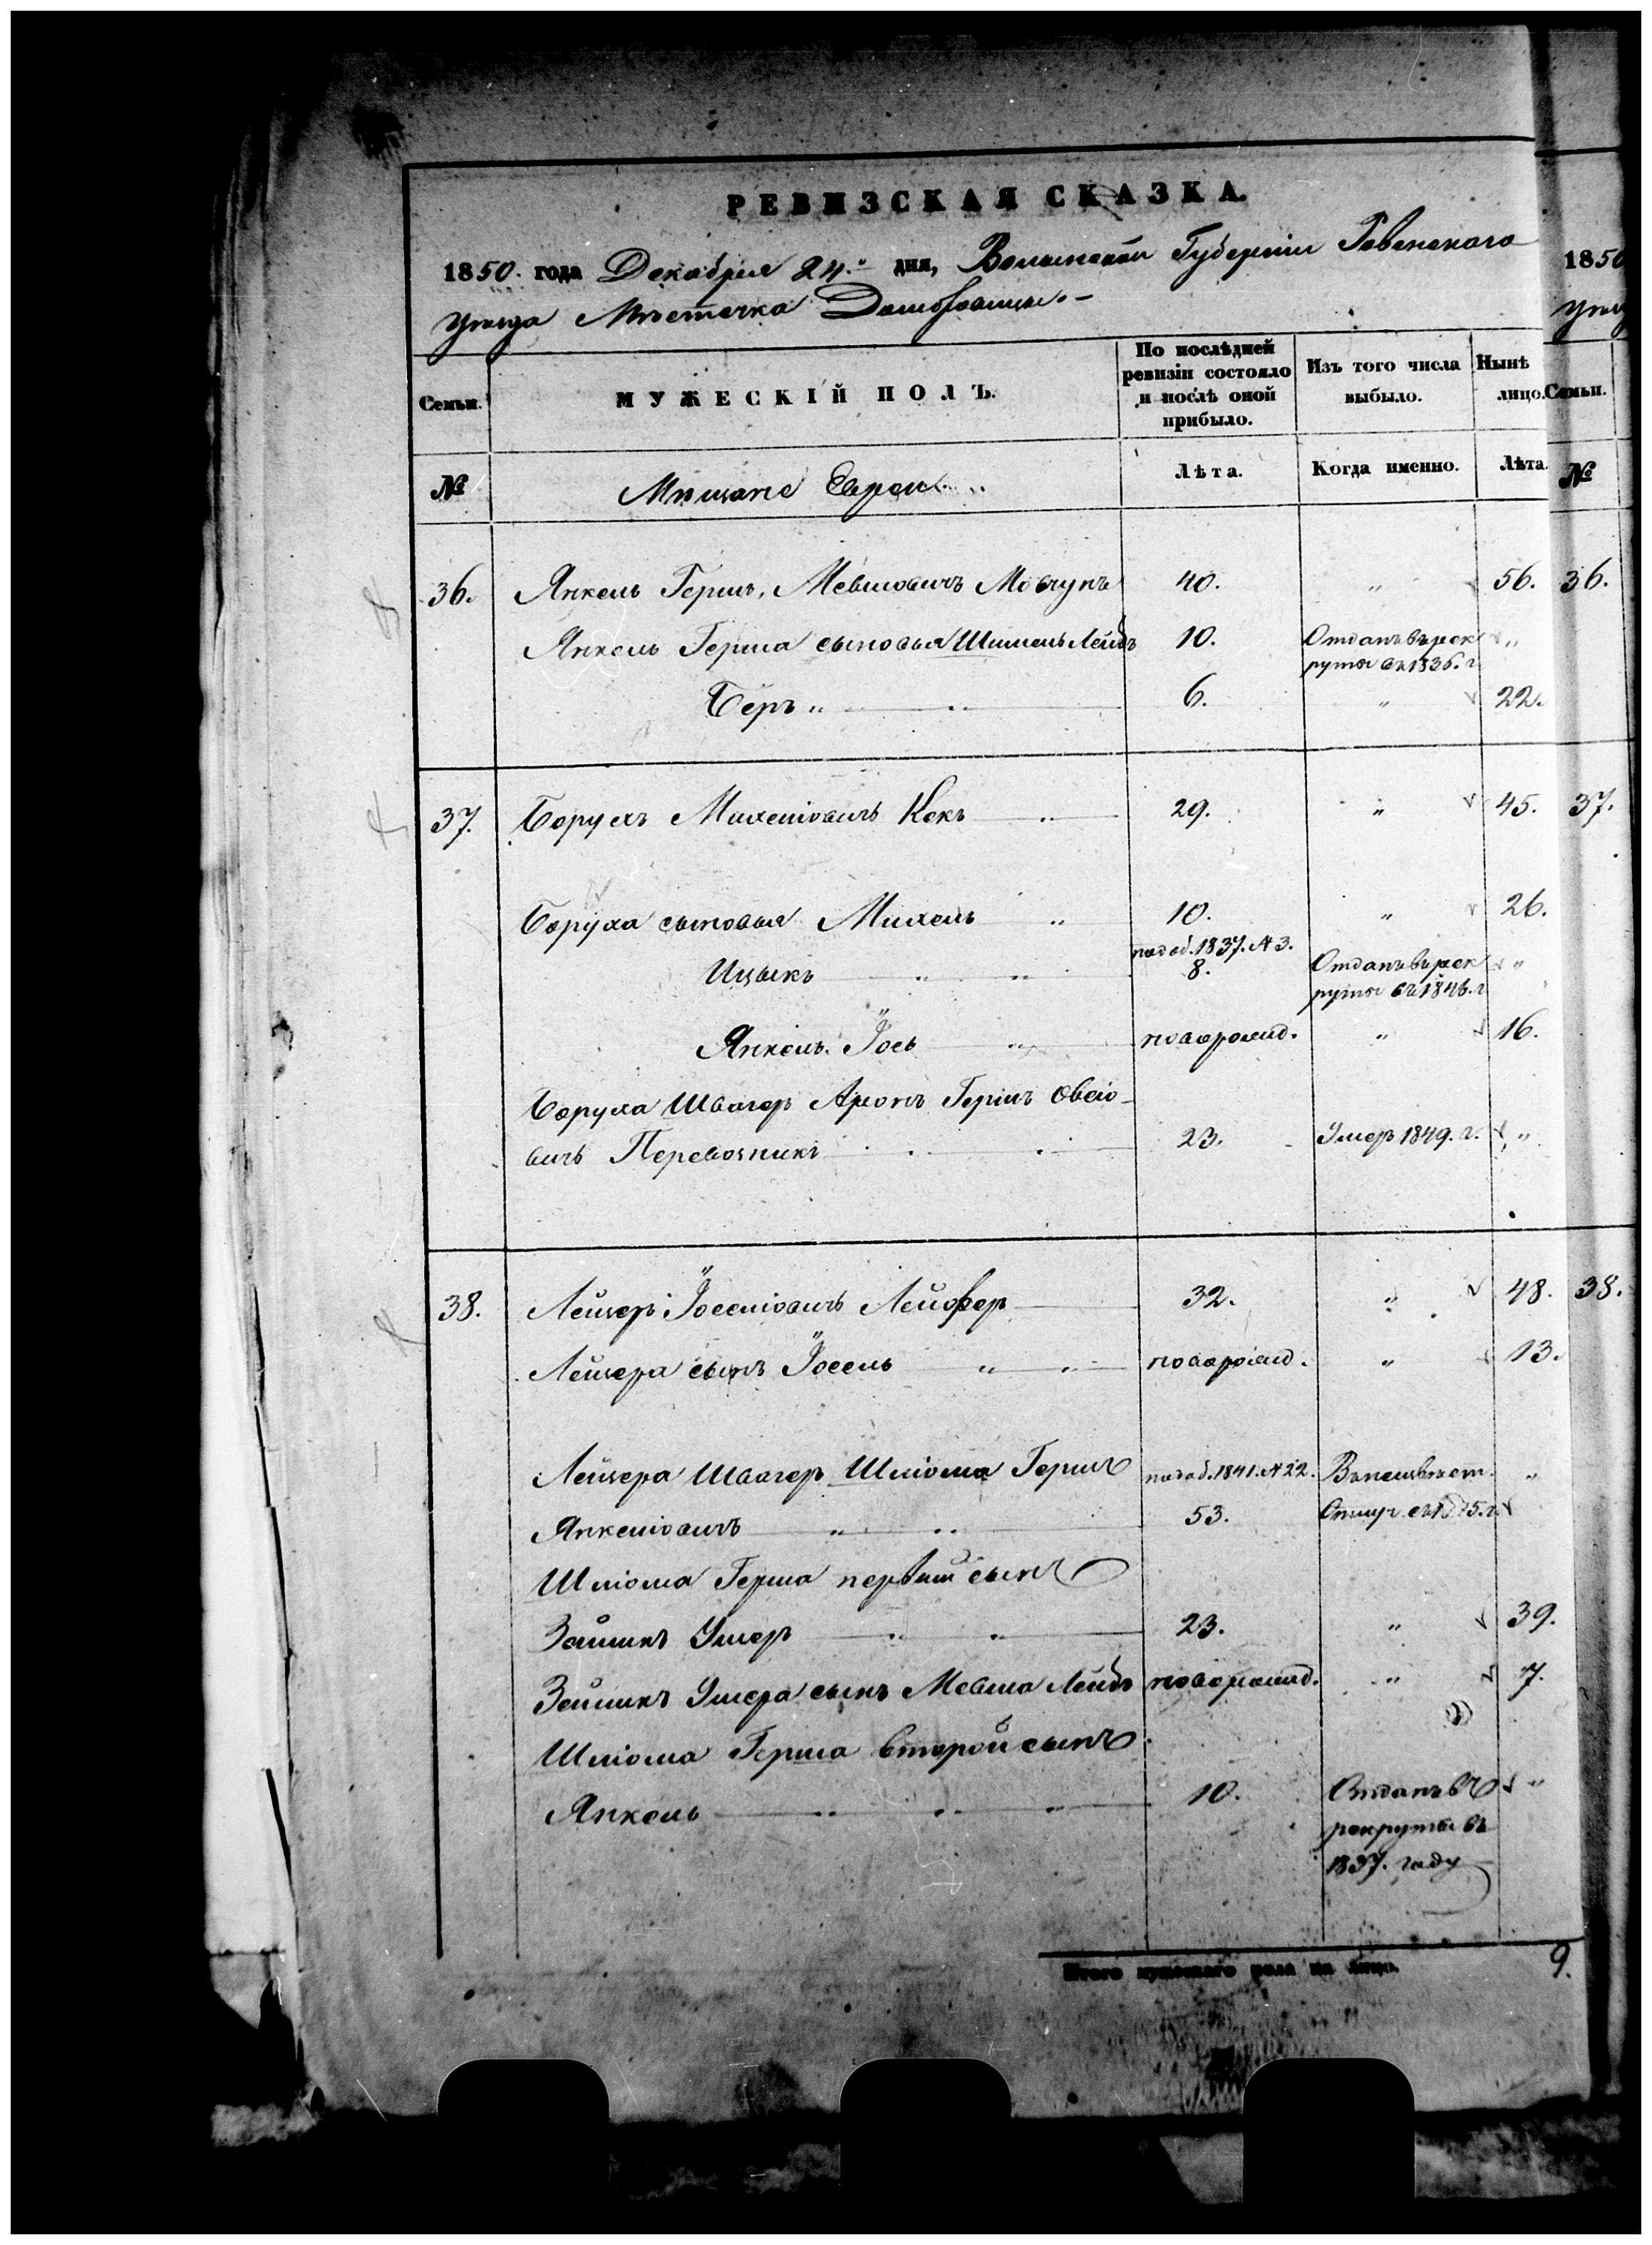 РЕВИЗСКАЯ СКАЗКА.
1850. года Декабря 24.го дня, Волынской Губерніи Ровенского
1850
уезда Местечка Домбровицы.
По последней ревизіи состояло и послѣ оной прибыло.
Изъ того числа выбыло.
Нынѣ лицо.
Семьи.
МУЖЕСКІЙ ПОЛЪ.
Семьи.
№
Мещане Евреи
Лѣта.
Когда именно.
Лѣта.
№
36. Янкель Гершъ, Мевшовичъ Мовчунъ 40. „ 56. 36.
Янкель Герша сыновья Шимель Лейбъ 10. Отданъ въ рек „
руты въ 1836. г.
Беръ „ 6. „ 22.
37. Борухъ Михеліовичъ Кокъ 29. „ 45. 37.
Боруха сыновья Михель 10. „ 26.
по доб. 1837. №3.
Ицыкъ 8. Отданъ въ рек „
руты въ 1846. г
Янкель Іось новорожд. „ 16.
Боруха Швагер Аронъ Гершъ Овсіо-
вичъ Перевозникъ 23. Умер 1849. г. „
38. Лейзер Іоселіовичъ Лейфер 32. „ 48. 38.
Лейзера сынъ Іосель новорожд. „ 13.
Лейзера Швагер Шліома Гершъ по доб. 1841. №22. „
Янкеліовичъ 53.
Шліома Герша первый сынъ
Зейликъ Умер 23. „ 39.
Зейликъ Умера сынъ Мевша Лейбъ новорожд. „ 7.
Шліома Герша второй сынъ
Янкель 10. Отданъ въ „
рекруты въ
1837. году
Итого мужескаго пола на лицо. 9.